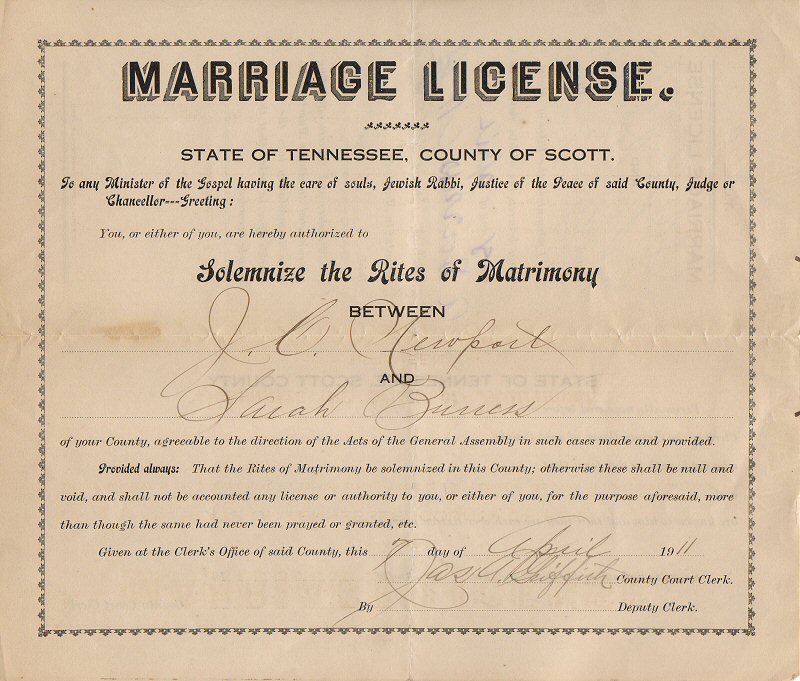 MARRIAGE LICENSE.
STATE OF TENNESSEE, COUNTY OF SCOTT.
To any Minister of the Gospel having the care of souls, Jewish Rabbi, Justice of the Peace of said County, Judge or
Chancellor---Greeting:
You, or either of you, are hereby authorized to
Solemnize the Rites of Matrimony
BETWEEN
J. C. Newport
AND
Sarah
of your County, agreeable to the direction of the Acts of the General Assembly in such cases made and provided.
Provided always: That the Rites of Matrimony be solemnized in this County; otherwise these shall be null and
void, and shall not be accounted any license or authority to you, or either of you, for the purpose aforesaid, more
than though the same had never been prayed or granted, etc.
Given at the Clerk's Office of said County, this 7 day of April 1911
Jas Griffith County Court Clerk.
By Deputy Clerk.